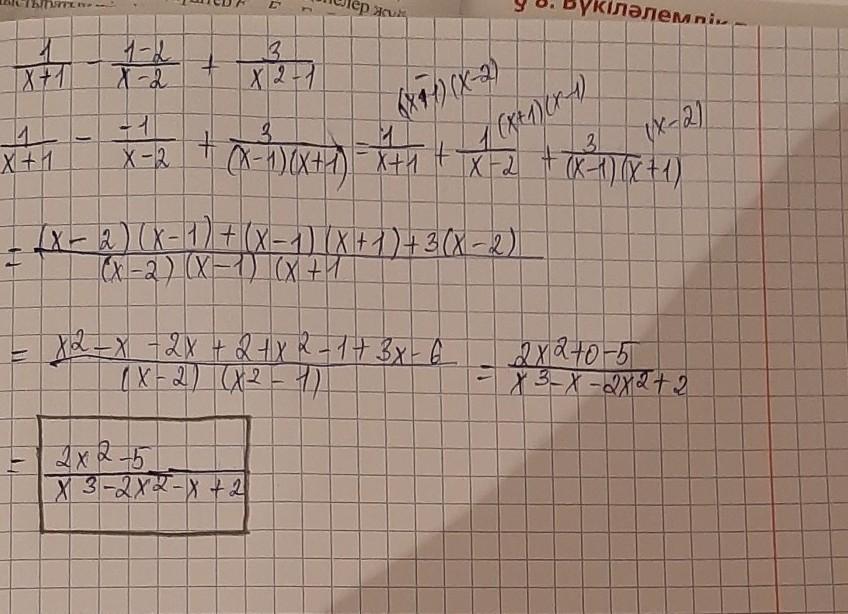 § 8. Бүкіләлемдік
1/(x+1) - (1-2)/(x-2) + 3/(x2-1)
1/(x+1) - (-1)/(x-2) + 3/((x-1)(x+1)) = 1/(x+1) (x-1)(x-2) + 1/(x-2) (x+1)(x-1) + 3/((x-1)(x+1)) (x-2)
= ((x-2)(x-1)+(x-1)(x+1)+3(x-2))/((x-2)(x-1)(x+1
= (x2-x-2x+2+x2-1+3x-6)/((x-2)(x2-1)) = (2x2+0-5)/(x3-x-2x2+2)
= (2x2-5)/(x3-2x2-x+2)